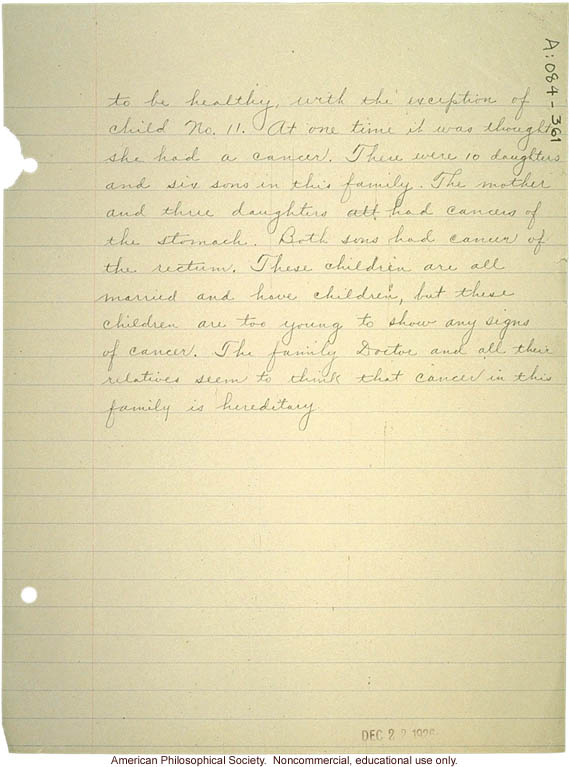 A:084-361
to be healthy, with the exception of
child No. 11. At one time it was thought
she had a cancer. There were 10 daughters
and six sons in this family. The mother
and three daughters all had cancers of
the stomach. Both sons had cancer of
the rectum. These children are all
married and have children, but these
children are too young to show any signs
of cancer. The family Doctor and all their
relatives seem to think that cancer in this
family is hereditary
DEC 2 1926
American Philosophical Society. Noncommercial, educational use only.